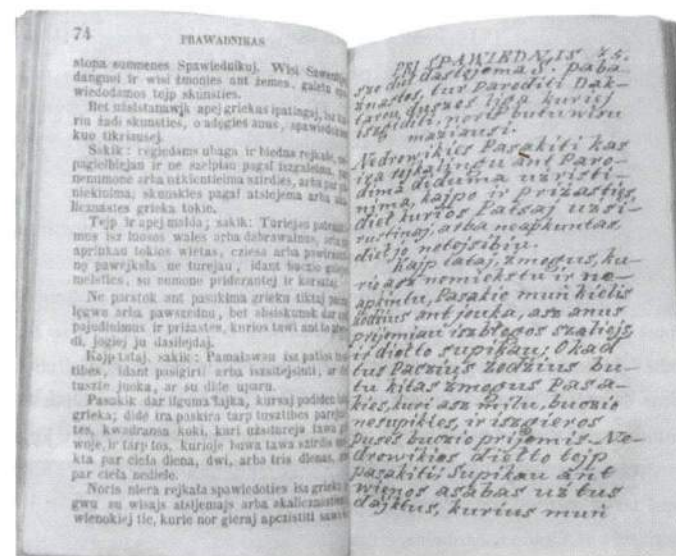 74
PRAWADNIKAS
stona sumnenes Spawiednikuj. Wisi Szwentije
dangui ir wisi žmonies ant žemes, galetu
wiedodamos tejp skunsties.
Bet užsistanawik apej griekus ipatingaj,
riu žadi skunsties, o adęgies anus, spawiedok
kuo tikriausej.
Sakik: regiedams ubaga ir biedna rejkale,
pagielbiejau ir ne szelpiau pagal iszgalejma,
nenumone arba užkientieima szirdies, arba par
niekinima, skunskies pagal atsiejema arba
licznastes grieka tokie.
Tejp ir apej malda; sakik: Turiejau
mus isz luosos wales arba dabrawalnus,
aprinkau tokios wietas, cziesa arba
ny pawejksla ne turejau, idant buczio
melsties, su numone priderantej ir karsztaj.
Ne parstok ant pasukima grieku tiktaj
lęgwu arba pawszednu, bet absiskunsk dar
pajudinimus ir prižastes, kurios tawi ant to
di, jogiej ju dasilejdaj.
Kajp tataj, sakik: Pamaławau isz patios
tibes, idant pasigirti arba iszsitejsinti, ar
tuszte juoka, ar su dide uparu.
Pasakik dar ilguma łajka, kursaj padiden
grieka; didė ira paskira tarp tusztibes
tes, kwadransa koki, kuri užsitureja tawa
woje, ir tarp tos, kurioje buwa tawa szirdis
kta par ciela diena, dwi, arba tris dienas,
par ciela nediele.
Noris niera rejkała spawiedoties isz grieku
gwu su wisajs atsijemajs arba akalicznastems
wienokiej tie, kurie nor gieraj apczistiti sawa
PRI SPAWIEDNIIS 75.
sze diel dastejema S. paba
znastos, tur parediti Dak-
tarou duszes liga kuriej
iszgiditi, noris butu wisu
maziausi.
Nedrowikies Pasakiti kas
ira rejkalingu ant Paro-
dima diduma uzristi-
nima, kajpo ir Prizasties,
diel kurios Patsaj uzsi-
rustinaj, arba neapkuntas
diel jo notejsibiu.
Kajp tataj, zmogus, ku-
rio asz nemiekstu ir ne-
apkintu, Pasakie muń kielis
zodzius ant jouka, asz anus
prijemiau iszblogos szaliejs,
ir dielto supikau; O kad
tus Paczius Zodzius bu-
tu kitas zmogus Pasa-
kies, kuri asz milu, buczio
nesupikies, ir iszgieros
puses buczio prijemis. Ne-
drowikies dielto tejp
pasakiti; Supikau ant
wienos asabas uz tus
dajktus, kurius muń